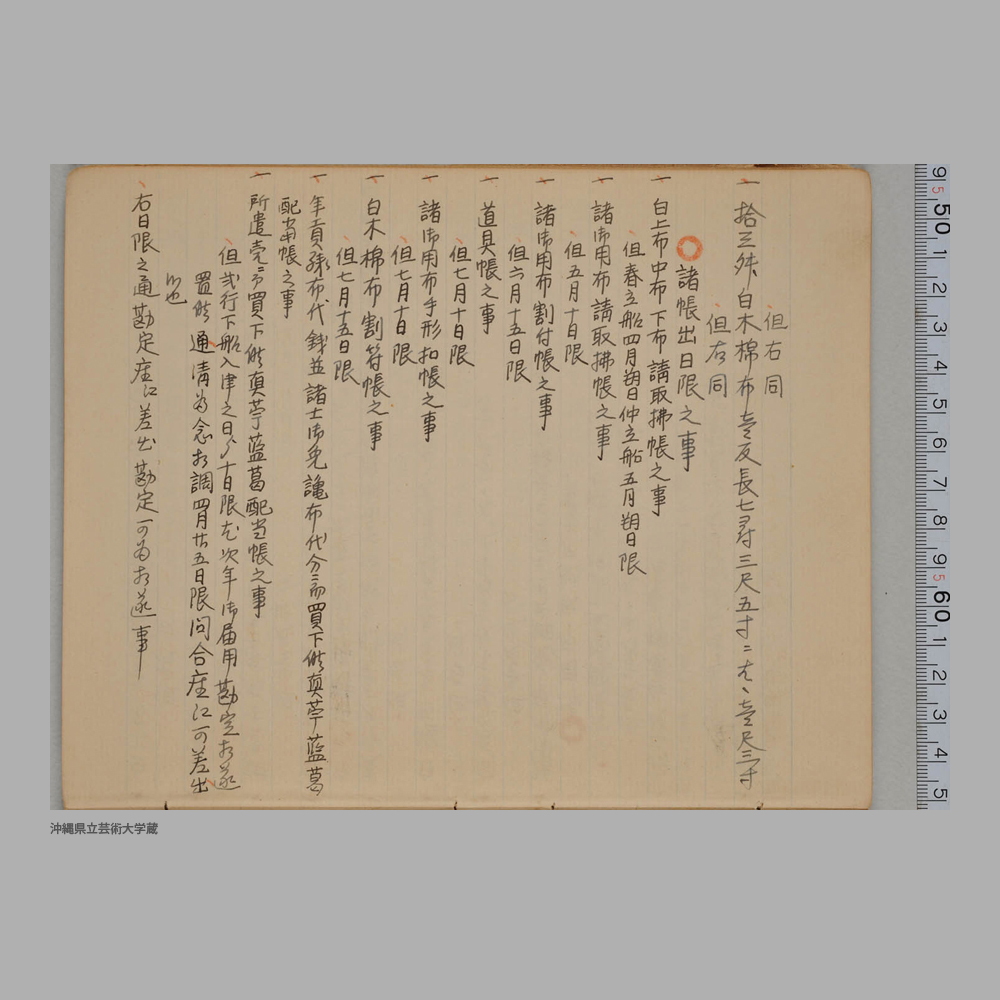 但右同
一 拾三舛白木棉布壱反長七尋三尺五寸二尤、壱尺三寸
但右同
諸帳出日限之事
一 白上布中布下布請取拂帳之事
但春立船四月朔日仲立船五月朔日限
一 諸御用布請取拂帳之事
但五月十日限
一 諸御用布割付帳之事
但六月十五日限
一 道具帳之事
但七月十日限
一 諸御用布手形扣帳之事
但七月十日限
一 白木棉布割符帳之事
但七月十五日限
一 年貢疎布代銭並諸士御免織布代分ニ而買下候真苧藍葛
配当帳之事
一 所遣売ニ而買下候真苧藍葛配当帳之事
但弐行下船入津之日ゟ十日限尤次年御届用勘定相遂
置候通清為念相調四月廿五日限問合座江可差出
候也
右日限之通勘定座江差出勘定可為相遂事
9 5 50 1 2 3 4 5 6 7 8 9 5 60 1 2 3 4 5
沖縄県立芸術大学蔵